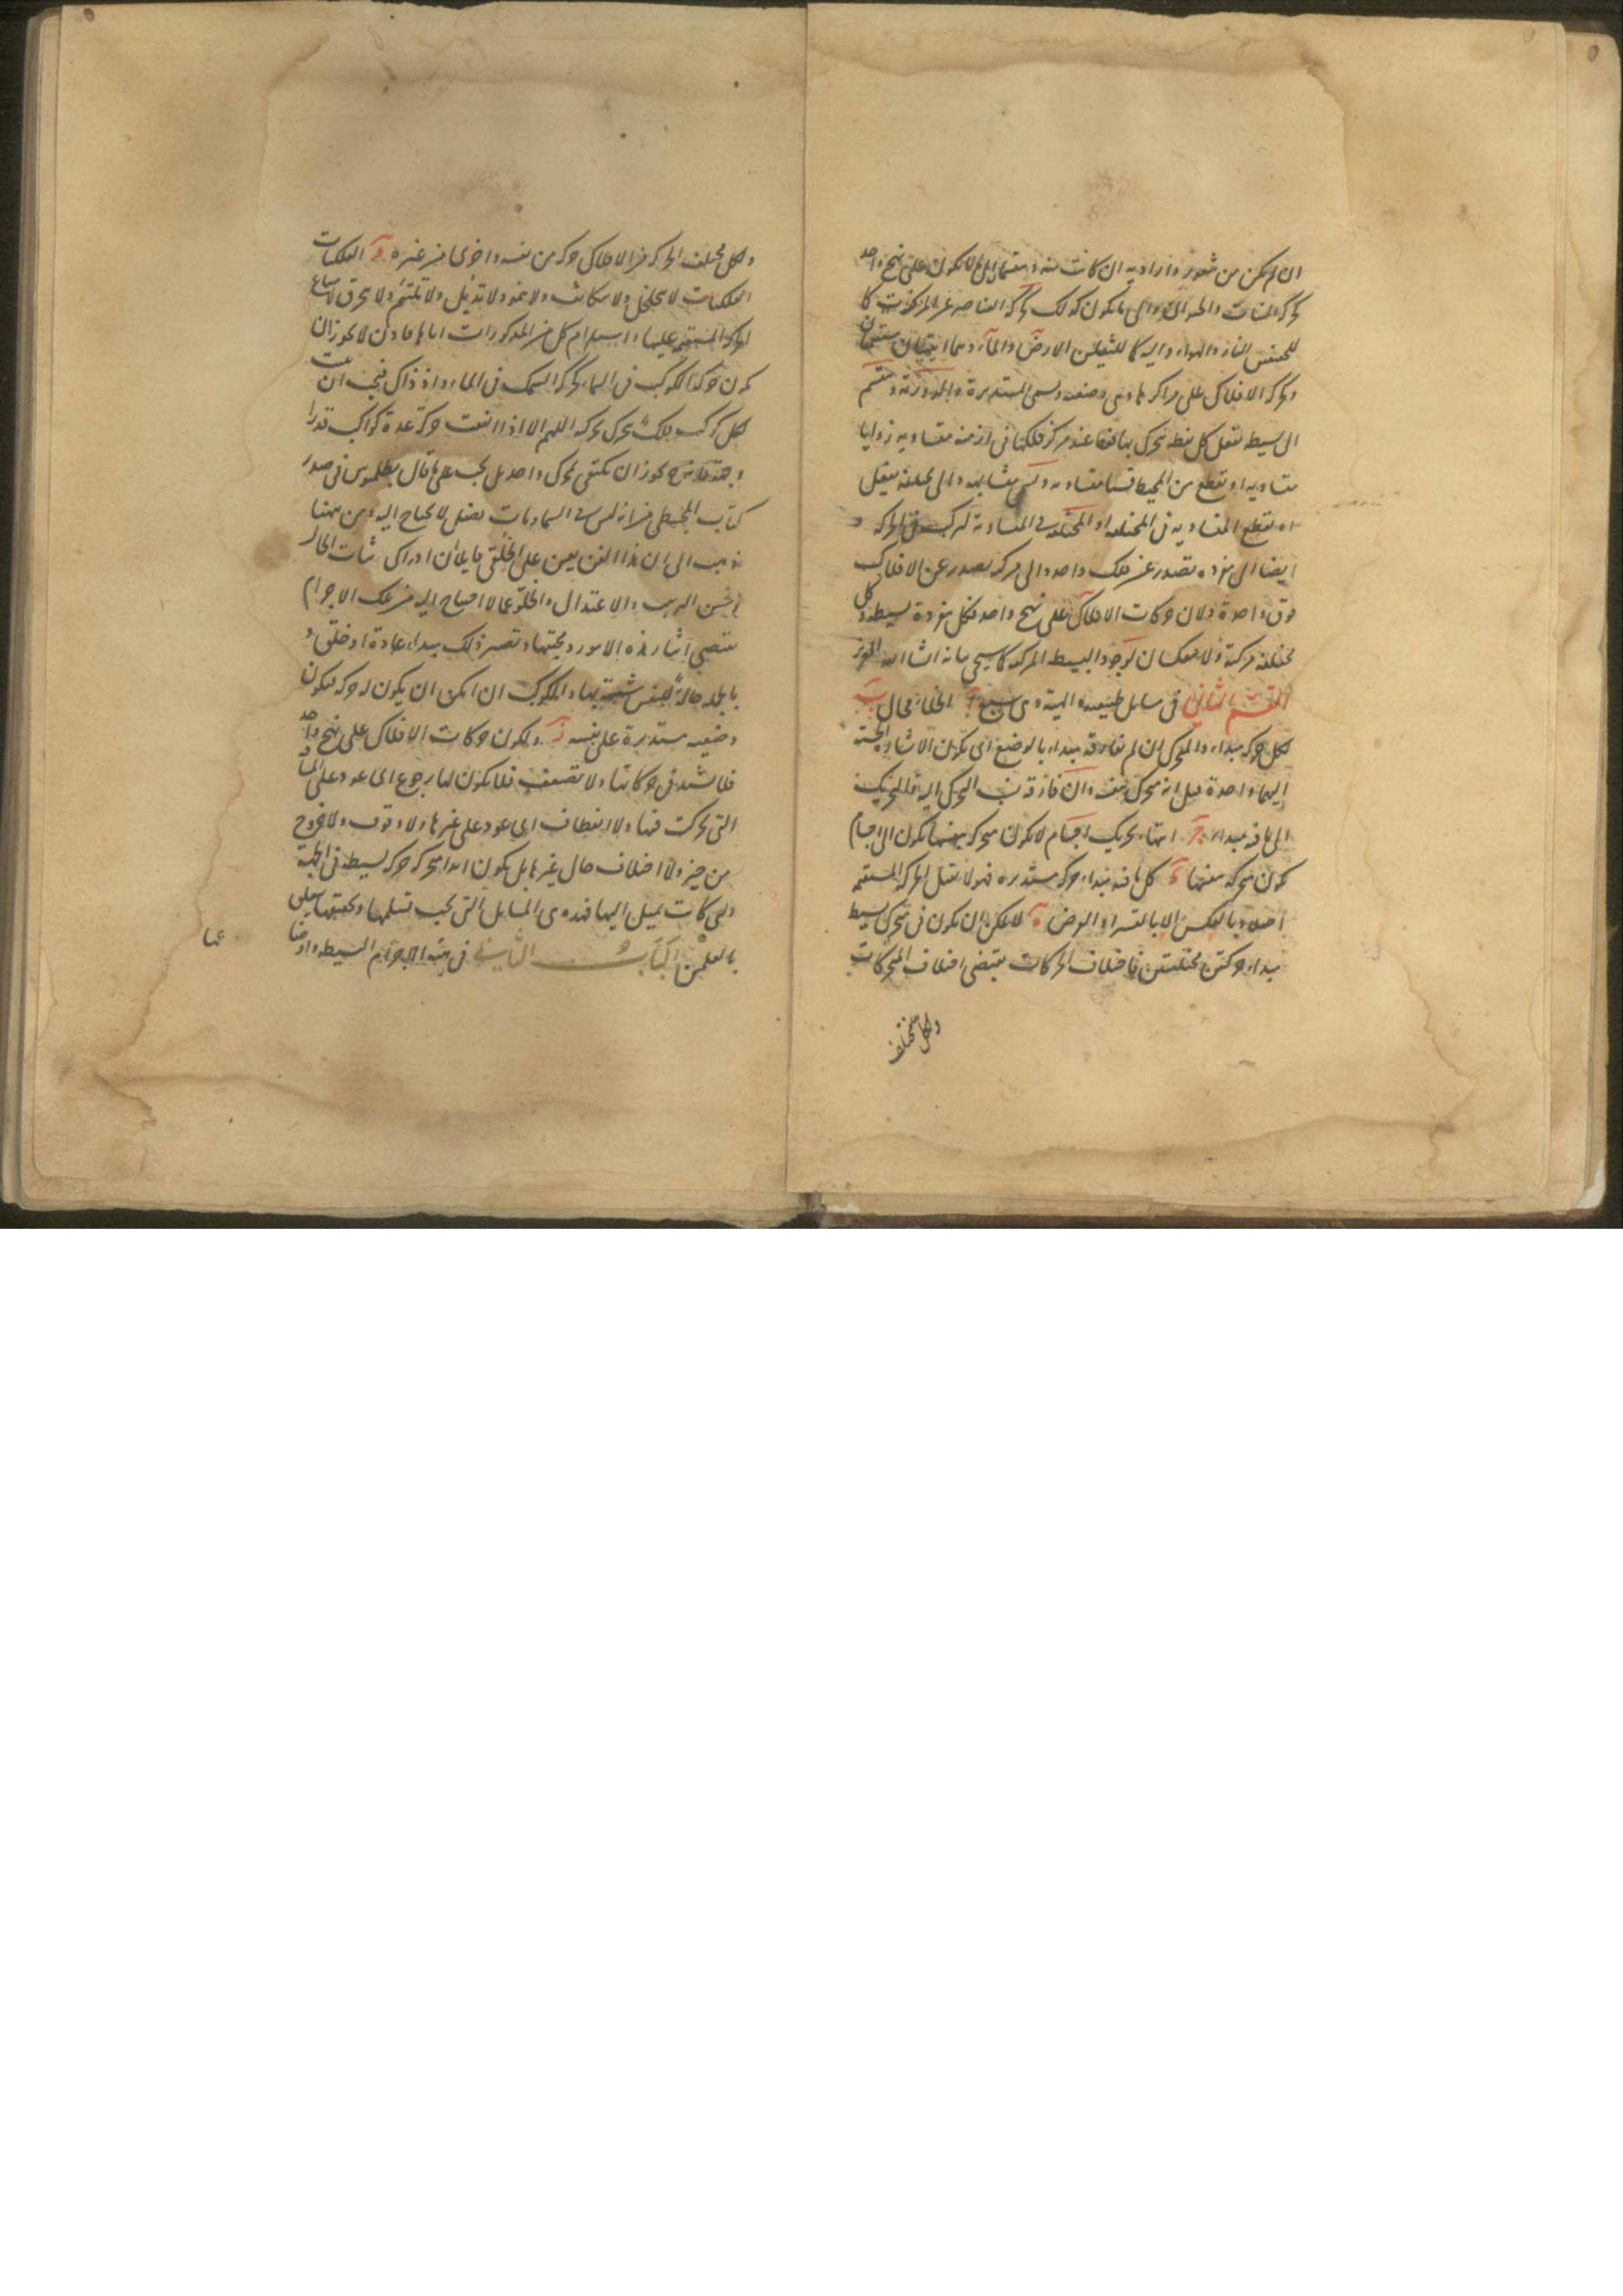 ان لم يكن من شعور وارادية ان كانت منه وينقسم الى ما لا يكون على نهج واحد
كحركة النبات والحيوان والى ما يكون كذلك كحركة العناصر عن المركز كما
للخفيفين النار والهواء واليه كما للثقيلين الارض والماء وهما اينيتان مستقيمتان
وحركة الافلاك على مراكزها وهى وضعية وتسمى المستديرة والدورية وينقسم
الى بسيطة تفعل كل نقطة تتحرك بها عند مركز فلكها فى ازمنة متساوية زوايا
متساوية او تقطع من المحيط قسيا متساوية وتسمى متشابهة والى مختلفة تفعل
او تقطع المتساوية فى المختلفة او المختلفة فى المتساوية لتركب فى الحركة و
ايضا الى مفردة تصدر عن فلك واحد والى مركبة تصدر عن الافلاك
فوق واحدة ولان حركات الافلاك على نهج واحد فكل مفردة بسيطة وكل
مختلفة مركبة ولا ينعكسان لوجود البسيط المركبة كما سيجى بيانه انشاء الله العزيز
القسم الثانى فى مسايل طبيعية والهية وهى سبع آ الخلاء محال ب
لكل حركة مبداء والمتحرك ان لم يفارقه مبداه بالوضع اى يكون الاشارة الحسية
اليهما واحدة قيل انه متحرك بنفسه وان فارقه نسب التحرك اليه والتحريك
الى ما فيه مبداه ج انتهاء تحريك اجسام لا يكون متحركة بنفسها يكون الى اجسام
يكون متحركة بنفسها د كل ما فيه مبداء حركة مستديرة فهو لا يقبل الحركة المستقيمة
اصلا وبالعكس الا بالقسر او العرض ه لا يمكن ان يكون فى متحرك بسيط
مبداء حركتين مختلفتين فاختلاف الحركات يقتضى اختلاف المتحركات
ولكل مختلف
ولكل مختلف الحركة من الافلاك حركة من نفسه واخرى من غيره و الفلكيات
الفلكيات لا يتخلخل ولا يتكاثف ولا ينمو ولا تذبل ولا تلتئم ولا ينخرق لامتناع
الحركة المستقيمة عليها واستلزام كل من المذكورات اياها فاذن لا يجوز ان
يكون حركة الكوكب فى السماء كحركة السمك فى الماء واذ ذاك فيجب ان يثبت
لكل كوكب فلك يتحرك بحركته اللهم الا اذا اتفقت حركة عدة كواكب قدرا
وجهة فانه ح يجوز ان يكتفى بمحرك واحد بل يجب على ما قال بطلميوس فى صدر
كتاب المجسطى من انه ليس فى السماويات فضل لا يحتاج اليه ومن ههنا
ذهب الى ان هذا الفن يعين على الخلق فان ادراك ثبات الحال
وحسن الترتيب والاعتدال والخلو عما لا احتياج اليه من تلك الاجرام
يقتضى ايثار هذه الامور ومحبتها وتصير ذلك مبداء عادة او خلق و
بالجملة حالة للنفس شبيهة بها والكوكب ان امكن ان يكون له حركة فيكون
وضعية مستديرة على نفسه ز ولكون حركات الافلاك على نهج واحد
فلا تشتد فى حركاتها ولا تضعف فلا يكون لها رجوع اى عود على المسافة
التى تحركت فيها ولا انعطاف اى عود على غيرها ولا وقوف ولا خروج
من حيز ولا اختلاف حال غيرها بل يكون ابدا متحركة حركة بسيطة فى الجهة
التى كانت تميل اليها فهذه هى المسايل التى يجب تسلمها وتحقيقها يتعلق
بالعلمين الكتاب الثانى فى هيئة الاجرام البسيطة واوضاعها
عها